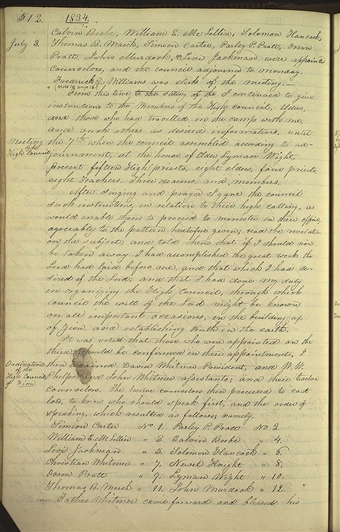 512.
1834.
Calvin Beebe, William E. McLellin, Solomon Hancock,
July 3
Thomas B. Marsh, Simeon Carter, Parley P. Pratt, Orson
Pratt, John Murdock, & Levi Jackman were appointed
Counselors, and the council adjourned to monday.
Frederick G. Williams was clerk of the meeting.
From this time to the of the 7 I continued to give
instructions to the Members of the High Council, Elders,
and those who had travelled in the camp with me,
and such others as desired information, until
Meeting
the 7th when the council assembled according to ad-
High Council
journment, at the house of Elder Lyman Wight.
Present fifteen High Priests, eight elders, four priests,
eight Teachers, three deacons, and members.
After singing and prayer I gave the council
such instructions in relation to their high calling, as
would enable them to proceed to minister in their office
agreeably to the pattern heretofore given; read the revelation
on the subject; and told them that if I should now
be taken away, I had accomplished the great work the
Lord had laid before me, and that which I had de-
sired of the Lord; and that I had done my duty
in organizing the High Council, through which
council the will of the Lord might be known
on all important occasions, in the building up
of Zion, and establishing truth in the earth.
It was voted that those who were appointed on the
third, should be confirmed in their appointments. I
Ordinations
then ordained David Whitmer President, and W. W.
of the
High Council
Phelps and John Whitmer assistants; and their twelve
of Zion
counselors. The twelve counselors then proceeded to cast
lots, to know who should speak first, and the order of
speaking, which resulted as follows, namely.
Simeon Carter No 1. Parley P. Pratt No 2.
William E. McLellin " 3. Calvin Beebe " 4.
Levi Jackman " 5. Solomon Hancock " 6.
Christian Whitmer " 7. Newel Knight " 8.
Orson Pratt " 9. Lyman Wight " 10.
Thomas B. Marsh " 11. John Murdock " 12.
Father Whitmer came forward and blessed his